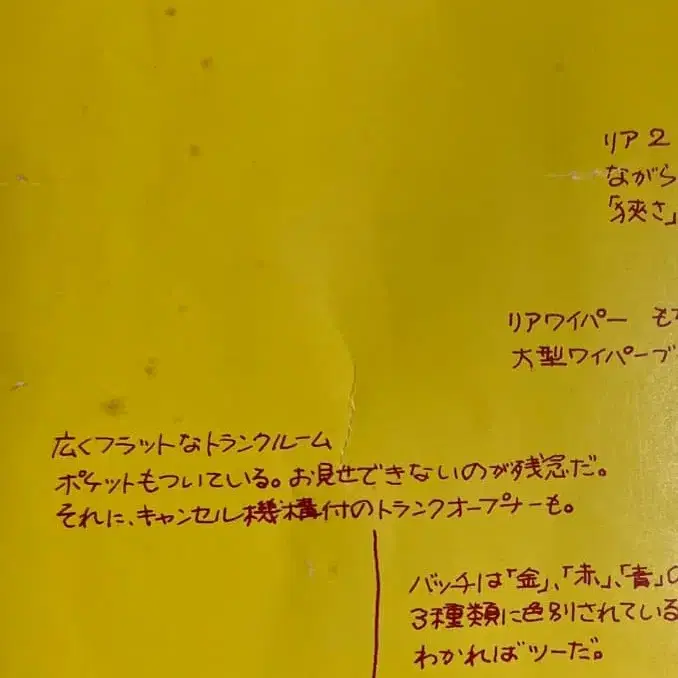 リア2
ながら
「狭さ」
リアワイパー も
大型ワイパーブ
広くフラットなトランクルーム
ポケットもついている。お見せできないのが残念だ。
それに、キャンセル機構付のトランクオープナーも。
バッチは「金」、「赤」、「青」の
3種類に色別されている
わかればツーだ。